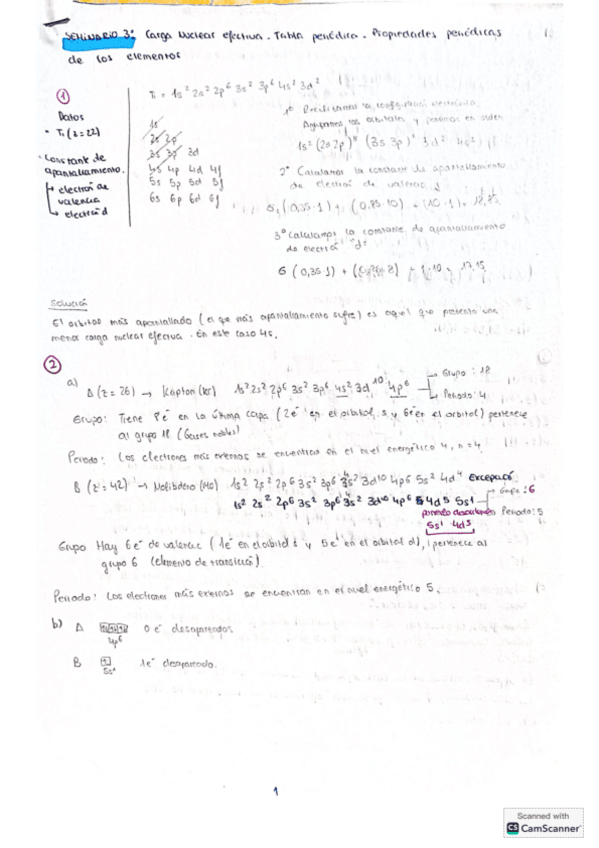 SEMINARIO 3: Carga Nuclear efectiva. Tabla periódica. Propiedades periódicas
de los elementos
①
Datos
• Ti (z=22)
• Constante de
apantallamiento.
↳ electrón de
valencia
↳ electrón d
Ti = 1s² 2s² 2p⁶ 3s² 3p⁶ 4s² 3d²
1s
2s 2p
3s 3p 3d
4s 4p 4d 4f
5s 5p 5d 5f
6s 6p 6d 6f
1º la configuración electrónica.
Agrupamos los orbitales y ponemos en orden
1s² (2s 2p)⁸ (3s 3p)⁸ 3d² 4s²
2º Calculamos la constante de apantallamiento
de electrón de valencia
(0,35·1) + (0,85·10) + (10·1) = 18,85
3º Calculamos la constante de apantallamiento
de electrón "d"
6 (0,35·1) + = 17,15
Solución
El orbital más apantallado (el que más apantallamiento sufre) es aquel que presenta una
menor carga nuclear efectiva. En este caso 4s.
②
a)
A (z=26) → Kripton (Kr) 1s² 2s² 2p⁶ 3s² 3p⁶ 4s² 3d¹⁰ 4p⁶
Grupo: 18
Periodo: 4
Grupo: Tiene 8e⁻ en la última capa (2e⁻ en el orbital s y 6e⁻ en el orbital) pertenece
al grupo 18 (Gases nobles)
Periodo: Los electrones más externos se encuentran en el nivel energético 4, n=4.
B (z=42) → Molibdeno (Mo) 1s² 2s² 2p⁶ 3s² 3p⁶ 4s² 3d¹⁰ 4p⁶ 5s² 4d⁴ Excepació
1s² 2s² 2p⁶ 3s² 3p⁶ 4s² 3d¹⁰ 4p⁶ 4d⁵ 5s¹
Grupo: 6
Periodo: 5
5s¹ 4d⁵
Grupo Hay 6e⁻ de valencia (1e⁻ en el orbital s y 5e⁻ en el orbital d), pertenece al
grupo 6 (elemento de transición)
Periodo: Los electrones más externos se encuentran en el nivel energético 5.
b)
A 0e⁻ desapareados
4p⁶
B 1e⁻ desapareado.
5s¹
1
Scanned with
CS CamScanner